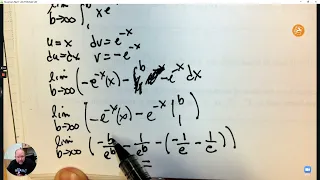 lim b→∞ ∫ x e^-x
u = x dv = e^-x
du = dx v = -e^-x
lim b→∞ -e^-x(x) - ∫ -e^-x dx
lim b→∞ [-e^-x(x) - e^-x |₁ᵇ)
lim b→∞ (-b/e^b - 1/e^b - (-1/e - 1/e))
=